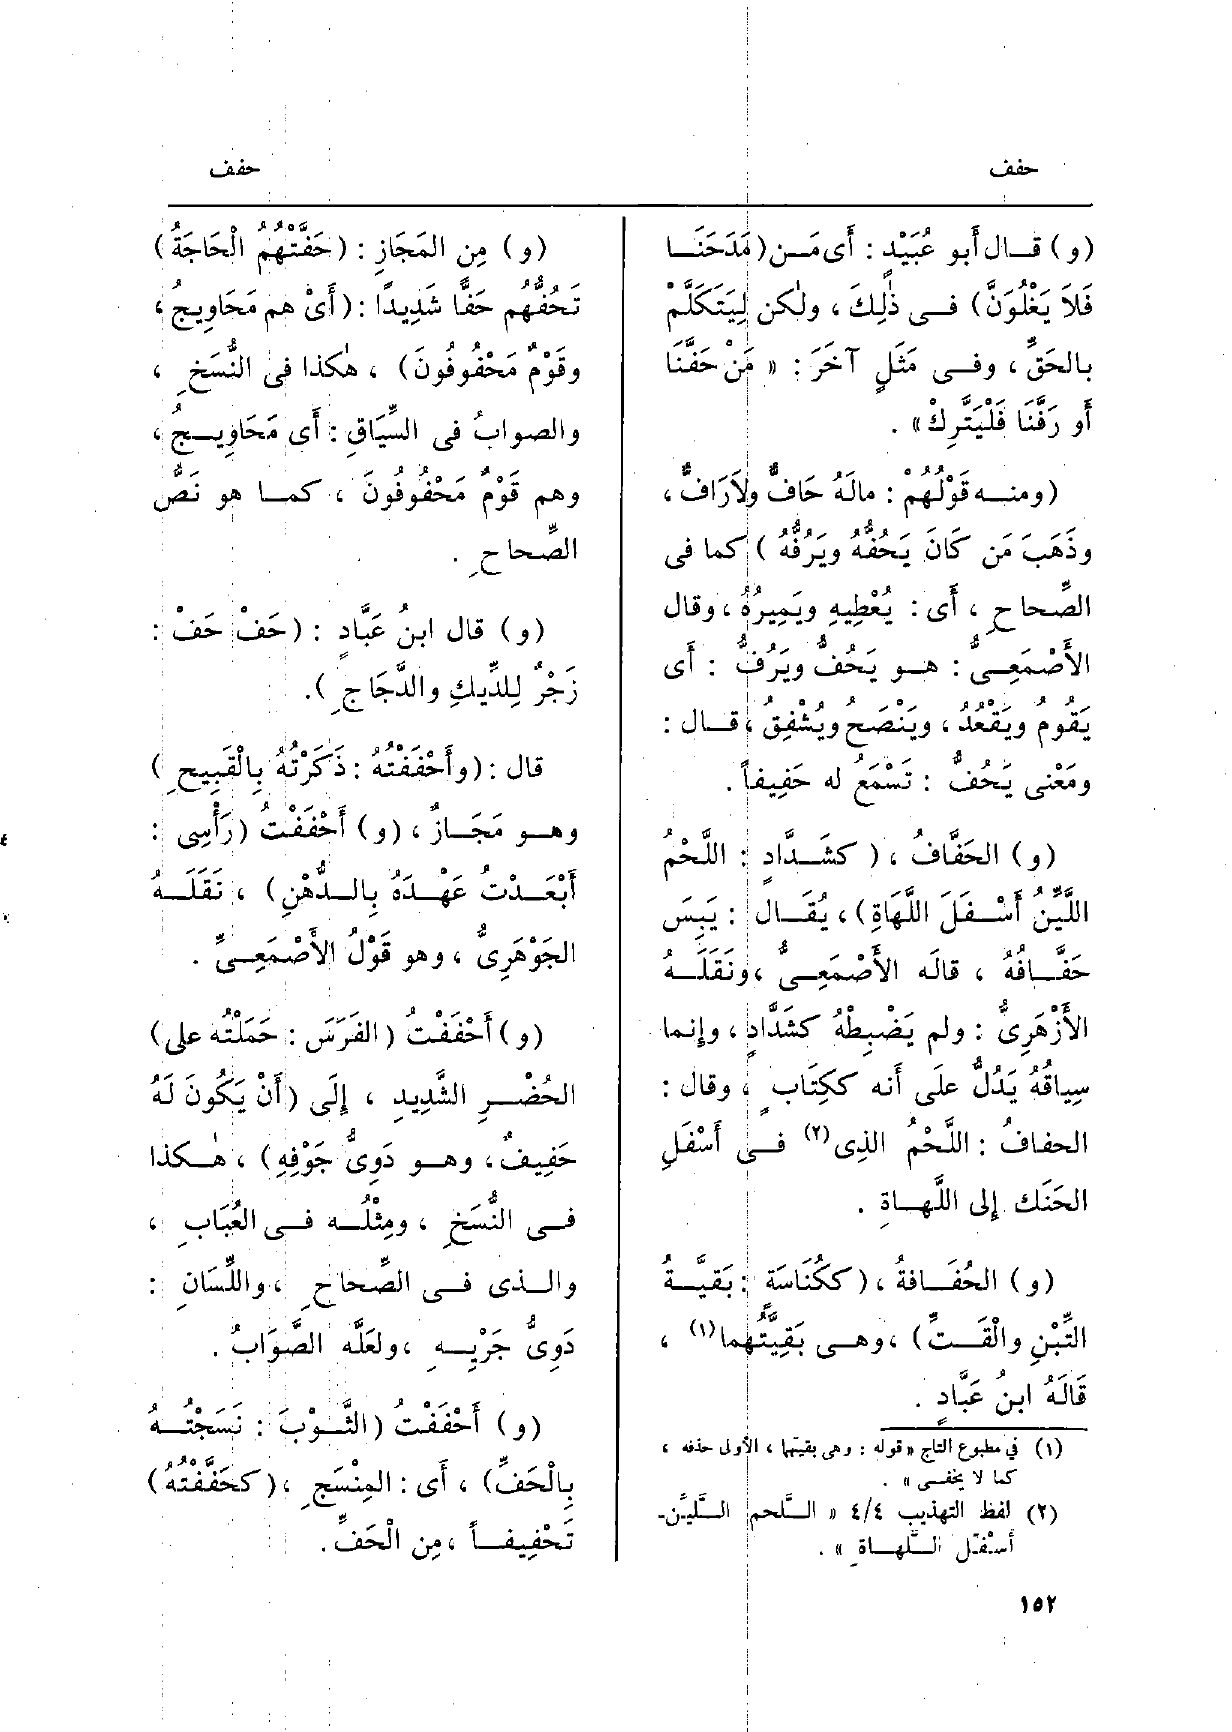 حفف
حفف
(و) قـال أبو عُبَيْدٍ : أَى مَـن (مَدَحَنَـا
فَلاَ يَغْلُوَنَّ) فـى ذٰلِكَ ، ولٰكن لِيَتَكَلَّمْ
بالحَقِّ ، وفـى مَثَلٍ آخَرَ : « مَنْ حَفَّنَا
أو رَفَّنَا فَلْيَتَرِكْ» .
(ومنـه قَوْلُهُمْ : مالَهُ حَافٌّ ولاَرَافٌّ ،
وذَهَبَ مَن كَانَ يَحُفُّهُ ويَرُفُّهُ ) كما فى
الصِّحاحِ ، أَى : يُعْطِيهِ ويَمِيرُهُ ، وقال
الأَصْمَعِـىُّ : هـو يَحُفُّ ويَرُفُّ : أَى
يَقُومُ ويَقْعُدُ ، ويَنْصَحُ ويُشْفِقُ ، قـال :
ومَعْنى يَحُفُّ : تَسْمَعُ له حَفِيفاً .
(و) الحَفَّافُ ، ( كَشَـدَّادٍ : اللَّحْمُ
اللَّيِّنُ أَسْـفَلَ اللَّهَاةِ) ، يُقَـال : يَبِسَ
حَفَّـافُهُ ، قالَه الأَصْمَعِـىُّ ، ونَقَلَـهُ
الأَزْهَرِىُّ : ولم يَضْبِطْهُ كشَدَّادٍ ، وإنما
سِياقُهُ يَدُلُّ علَى أنه ككِتَابٍ ، وقال :
الحفافُ : اللَّحْمُ الذِى (٢) فـى أَسْفَلِ
الحَنَك إِلى اللَّهـاةِ .
(و) الحُفَـافةُ ، ( ككُنَاسَة : بَقيَّـةُ
التِّبْنِ والْقَـتِّ) ، وهـى بَقِيَّتُهما (١) ،
قَالَهُ ابنُ عَبَّادٍ .
(١) في مطبوع التاج « قوله : وهى بقيتها ، الأولى حذفه ،
كما لا يخفـى » .
(٢) لفظ التهذيب ٤/٤ « الـلَّحم الـلَّيِّن
أَسْفَل الـلَّهـاةِ » .
(و) مِن المَجَازِ : (حَفَّتْهُمُ الْحَاجَةُ)
تَحُفُّهم حَفًّا شَدِيدًا : (أَىْ هم مَحَاوِيجُ ،
وقَوْمٌ مَحْفُوفُونَ) ، هٰكذا فى النُّسَخِ ،
والصوابُ فى السِّيَاقِ : أَى مَحَاوِيـجُ ،
وهم قَوْمٌ مَحْفُوفُونَ ، كمـا هو نَصُّ
الصِّحاحِ .
(و) قال ابنُ عَبَّادٍ : (حَفْ حَفْ :
زَجْرٌ لِلدِّيكِ والدَّجَاجِ ).
قال : (وأَحْفَفْتُهُ : ذَكَرْتُهُ بِالْقَبِيحِ )
وهـو مَجَـازٌ ، (و) أَحْفَفْتُ (رَأْسِى :
أَبْعَـدْتُ عَهْـدَهُ بِالـدُّهْنِ) ، نَقَلَـهُ
الجَوْهَرِىُّ ، وهو قَوْلُ الأَصْمَعِـىِّ .
(و) أَحْفَفْتُ (الفَرَسَ : حَمَلْتُه على)
الحُضْـرِ الشَّدِيدِ ، إِلَى (أَنْ يَكُونَ لَهُ
حَفِيفٌ ، وهـو دَوِىُّ جَوْفِهِ) ، هٰـكذا
فـى النُّسَخِ ، ومِثْلُـه فـى العُبَابِ ،
والـذى فـى الصِّحاحِ ، واللِّسَانِ :
دَوِىُّ جَرْيِـهِ ، ولعَلَّه الصَّوَابُ .
(و) أَحْفَفْتُ (الثَّـوْبَ : نَسَجْتُـهُ
بِالْحَفِّ) ، أَى : المِنْسَجِ ، (كحَفَّفْتُهُ)
تَحْفِيفـاً ، مِن الْحَفِّ .
١٥٢